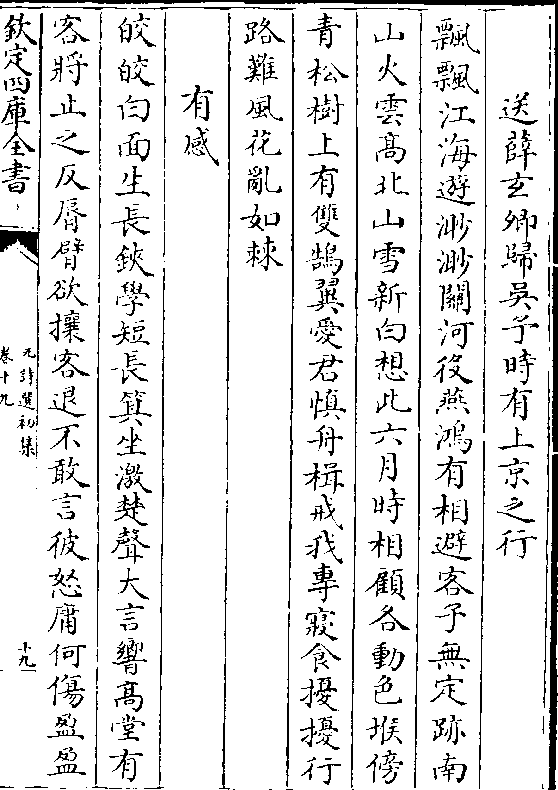 送薛玄卿歸吳予時有上京之行
飄飄江海遊渺渺關河役燕鴻有相避客子無定跡南
山火雲髙北山雪新白想此六月時相顧各動色堠傍
青松樹上有雙鵠翼愛君慎舟楫戒我專寢食擾擾行
路難風花亂如棘
有感
皎皎白面生長鋏學短長箕坐激楚聲大言響髙堂有
客將止之反脣臂欲攘客退不敢言彼怒庸何傷盈盈
欽定四庫全書
元詩選初集
卷十九
十九